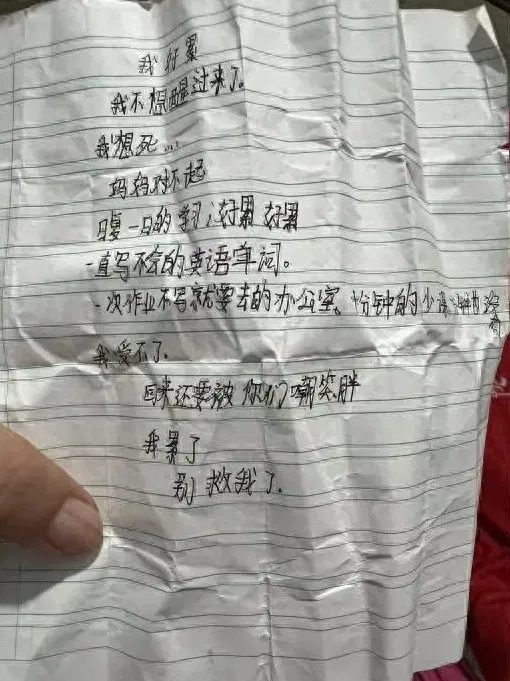 我好累
我不想醒过来了。
我想死...
妈妈对不起
日复一日的学习，好累 好累
一直写不会的英语单词。
一次作业不写就要去的办公室。十分钟的少得 钟的没有
我受不了。
回来还要被你们嘲笑胖
我累了
别救我了.